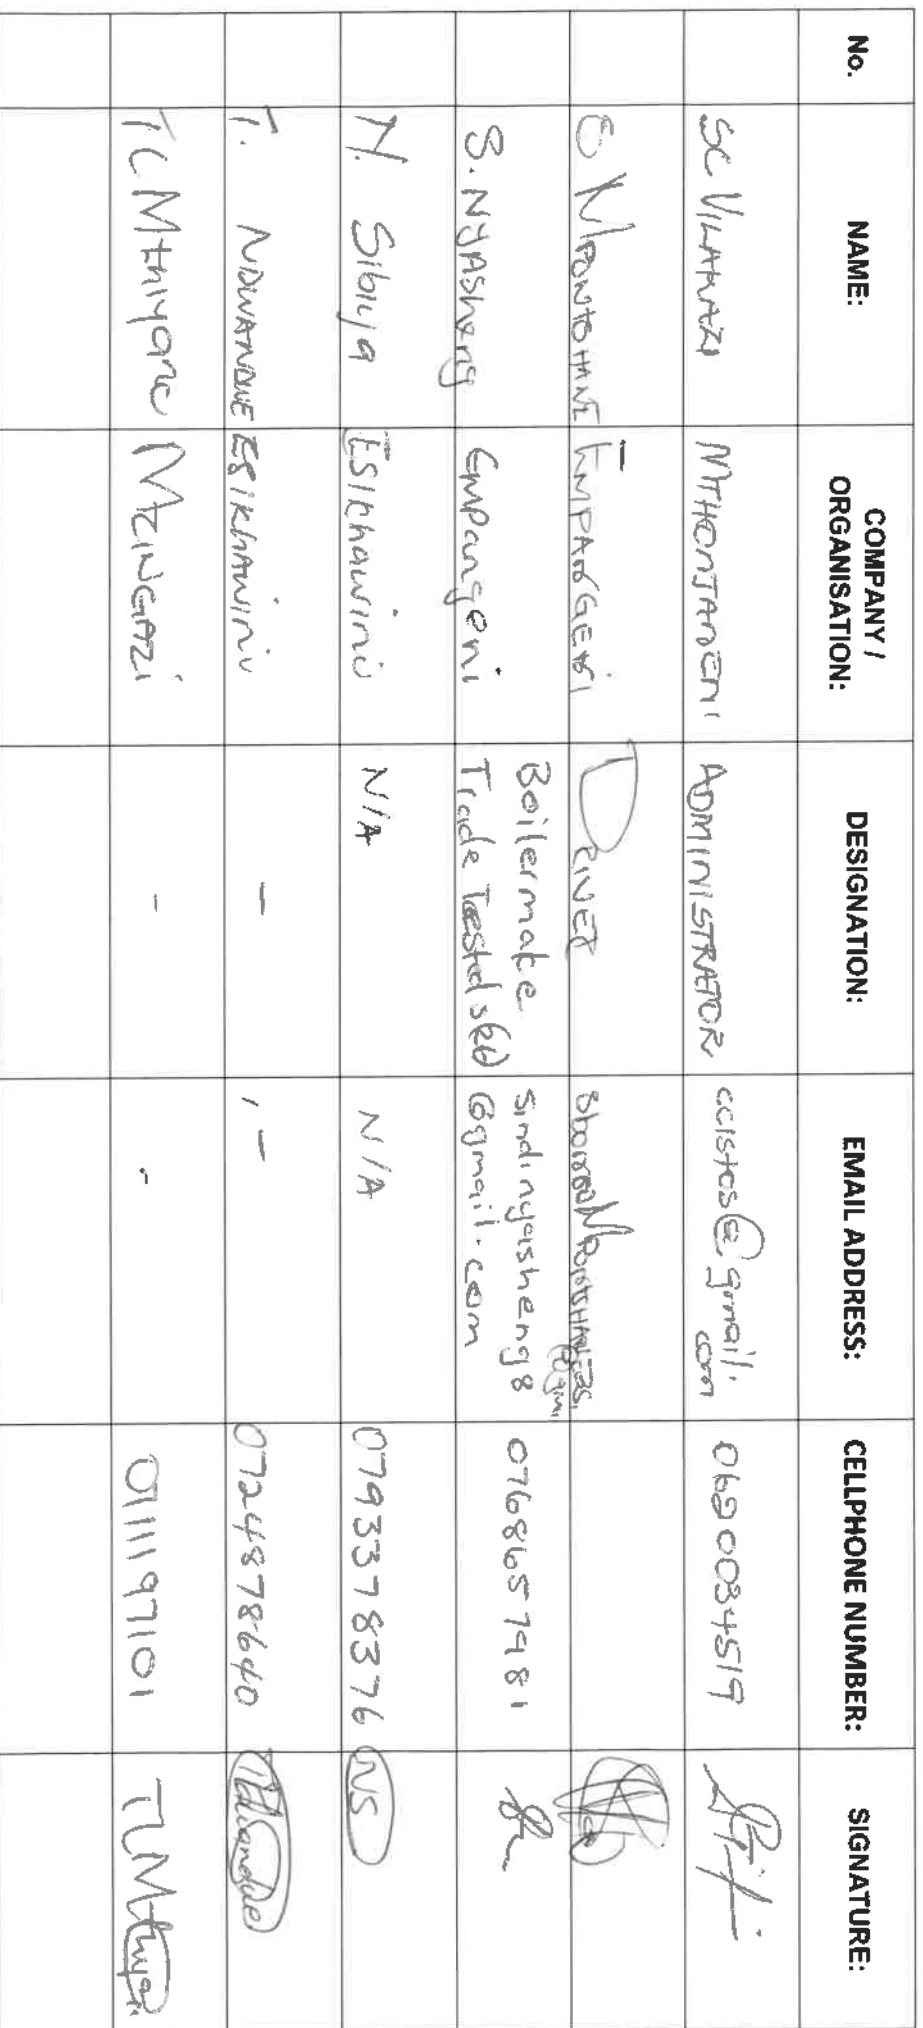 No. NAME: COMPANY / ORGANISATION: DESIGNATION: EMAIL ADDRESS: CELLPHONE NUMBER: SIGNATURE:
SC VILAKAZI MTHONJANENI ADMINISTRATOR ccistos@gmail.com
S MPONTSHANE EMPANGENI DRIVER
S. NYASheng Empangeni Boilermake Trade Tested sindinyasheng8@gmail.com 0768657981
N. Sibiya ESIkhawini N/A N/A 0793378376 NS
T. NDWANDWE ESIKHAWINI - - 0724878640 TNdwandwe
T.C Mthiyane MZINGAZI - - 0711197101